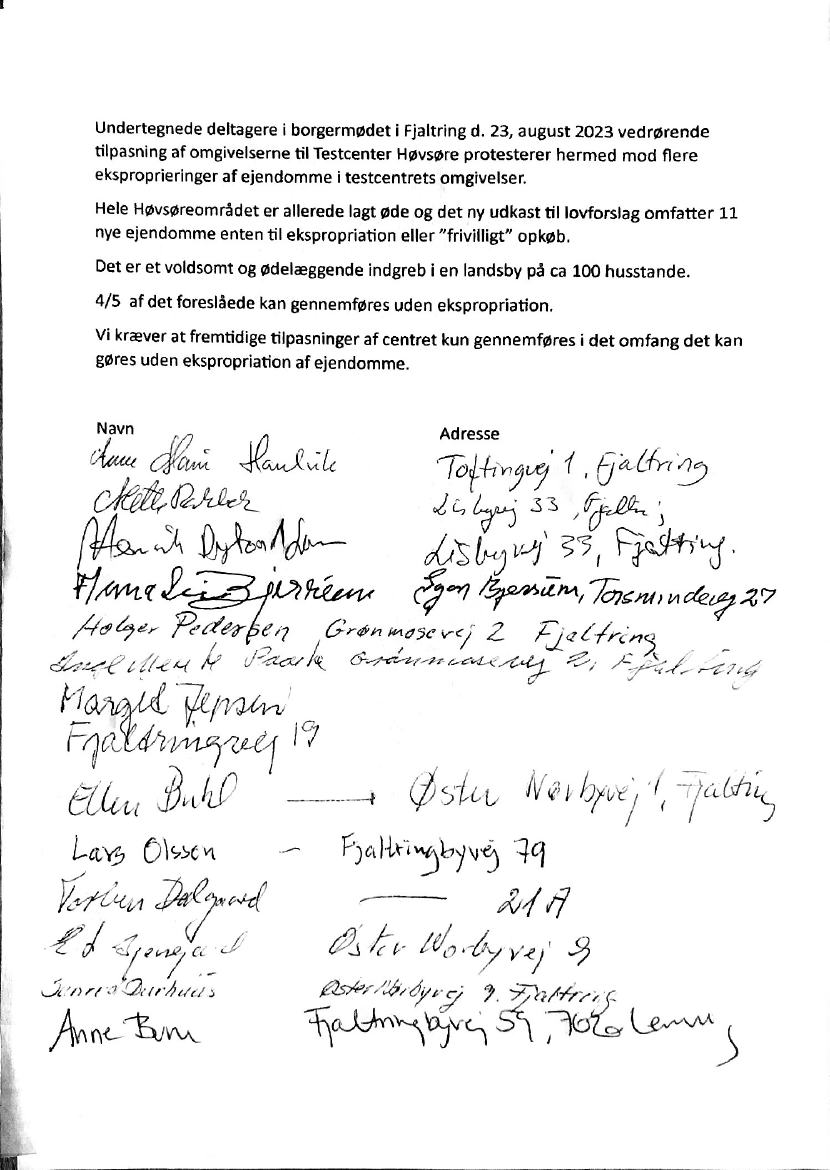 Undertegnede deltagere i borgermødet i Fjaltring d. 23, august 2023 vedrørende
tilpasning af omgivelserne til Testcenter Høvsøre protesterer hermed mod flere
eksproprieringer af ejendomme i testcentrets omgivelser.
Hele Høvsøreområdet er allerede lagt øde og det ny udkast til lovforslag omfatter 11
nye ejendomme enten til ekspropriation eller ”frivilligt” opkøb.
Det er et voldsomt og ødelæggende indgreb i en landsby på ca 100 husstande.
4/5 af det foreslåede kan gennemføres uden ekspropriation.
Vi kræver at fremtidige tilpasninger af centret kun gennemføres i det omfang det kan
gøres uden ekspropriation af ejendomme.
Navn Adresse
Toftingvej 1, Fjaltring
Lisbyvej 33,
Henrik Lisbyvej 33, Fjaltring.
Anna Egon Bjerrum, Torsmindevej 27
Holger Pedersen Grønmosevej 2 Fjaltring
Grønmosevej 2, Fjaltring
Margid Jepsen
Fjaldringvej 19
Ellen Buhl Øster Nørbyvej 1, Fjaltring
Lars Olssen – Fjaltringbyvej 79
Torben Dalgaard — 21 A
Øster Nørbyvej 9
Øster Nørbyvej 9. Fjaltring
Anne Fjaltringbyvej 59, 7620 Lemvig